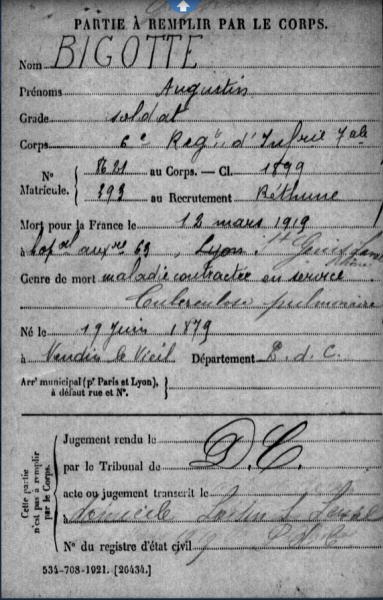 PARTIE À REMPLIR PAR LE CORPS.
Nom BIGOTTE
Prénoms Augustin
Grade soldat
Corps 6e Regt d'Infrie
No 8621 au Corps. — Cl. 1899
Matricule. 293 au Recrutement Béthune
Mort pour la France le 12 mars 1919
à hopal auxre 63, Lyon, St Genis Laval
Rhône
Genre de mort maladie contractée en service
Tuberculose pulmonaire
Né le 19 Juin 1879
à Vendin le Vieil Département P. d. C.
Arrt municipal (pr Paris et Lyon),
à défaut rue et No.
Cette partie
n'est pas à remplir
par le Corps.
Jugement rendu le
par le Tribunal de D.C.
acte ou jugement transcrit le
à domicile
No du registre d'état civil
534-708-1921. [26434.]